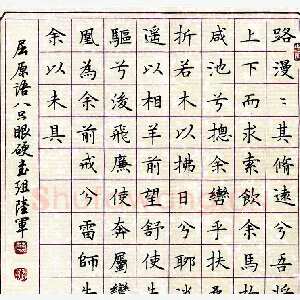 路漫〻其脩遠兮吾將
上下而求索飲余馬
咸池兮摠余轡乎扶
折若木以拂日兮耶
遥以相羊前望舒使
驅兮浚飛廉使奔屬
凰為余前戒兮雷師
余以未具
屈原語八只眼硬書組陸軍